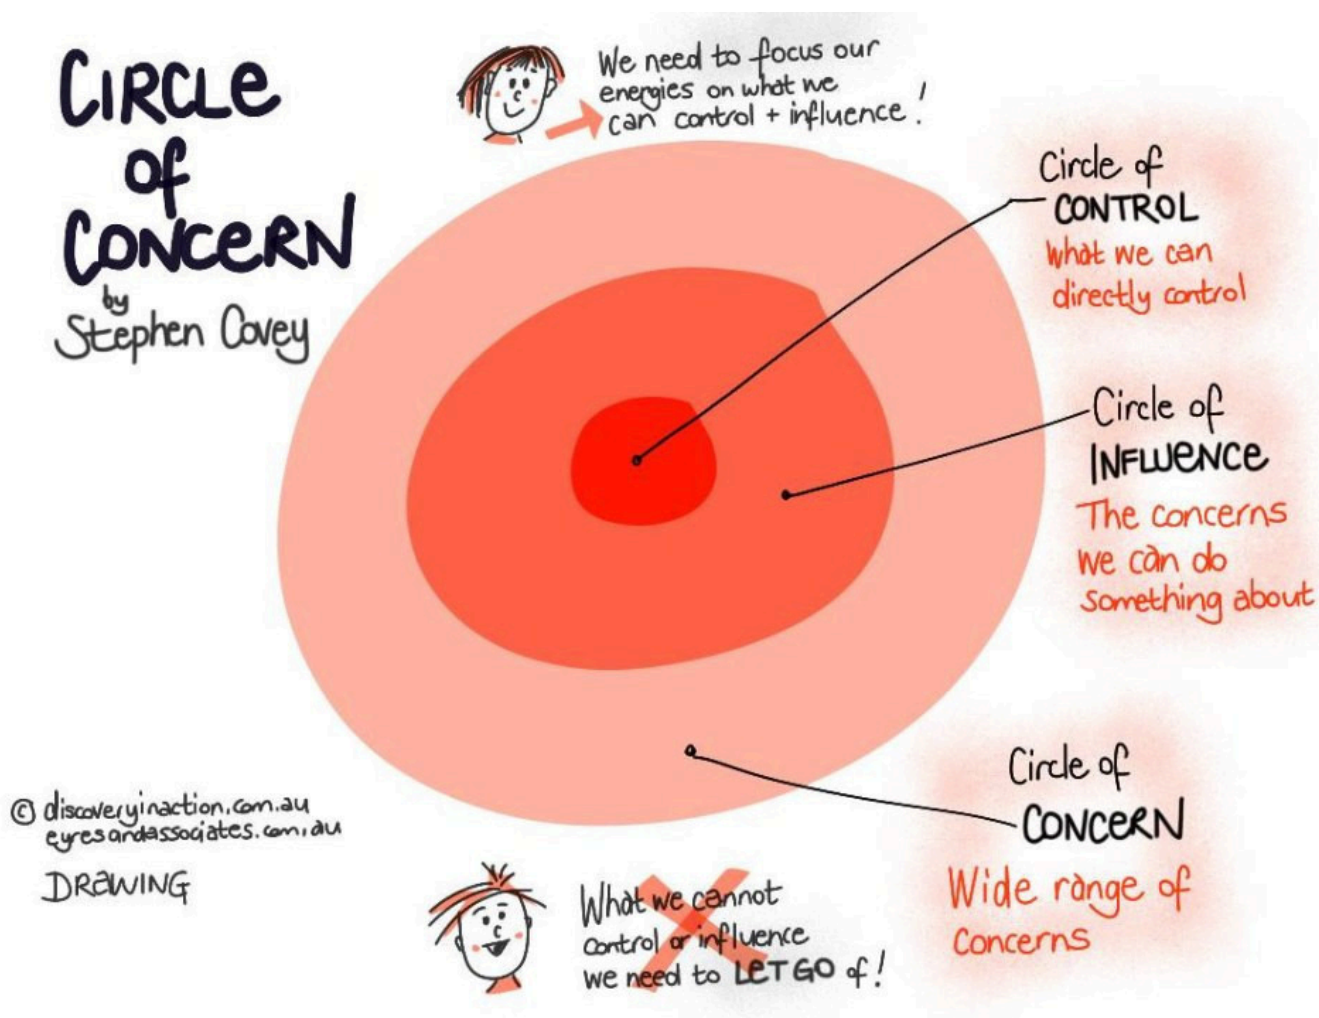 CIRCLe
of
CONCeRN
by
Stephen Covey
We need to focus our
energies on what we
can control + influence!
Circle of
CONTROL
What we can
directly control
Circle of
INFLUeNCe
The concerns
we can do
something about
Circle of
CONCeRN
Wide range of
concerns
© discoveryinaction.com.au
eyresandassociates.com.au
DRaWING
What we cannot
control or influence
we need to LeT GO of!